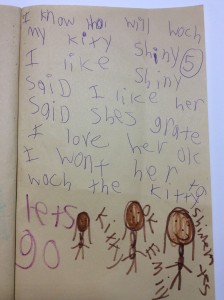 I know who will woch
my kitty Shiny 5
I like Shiny
Said I like her
Said shes grate
I love her ok
I wont her
woch the kitty
lets
go
Kitty
ok
Emily
Shink
yes